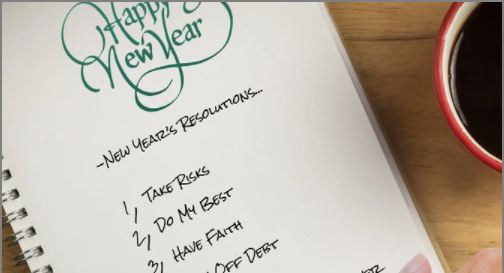 Happy
New Year
-New Year's Resolutions...
1, Take Risks
2, Do My Best
3, Have Faith
Off Debt